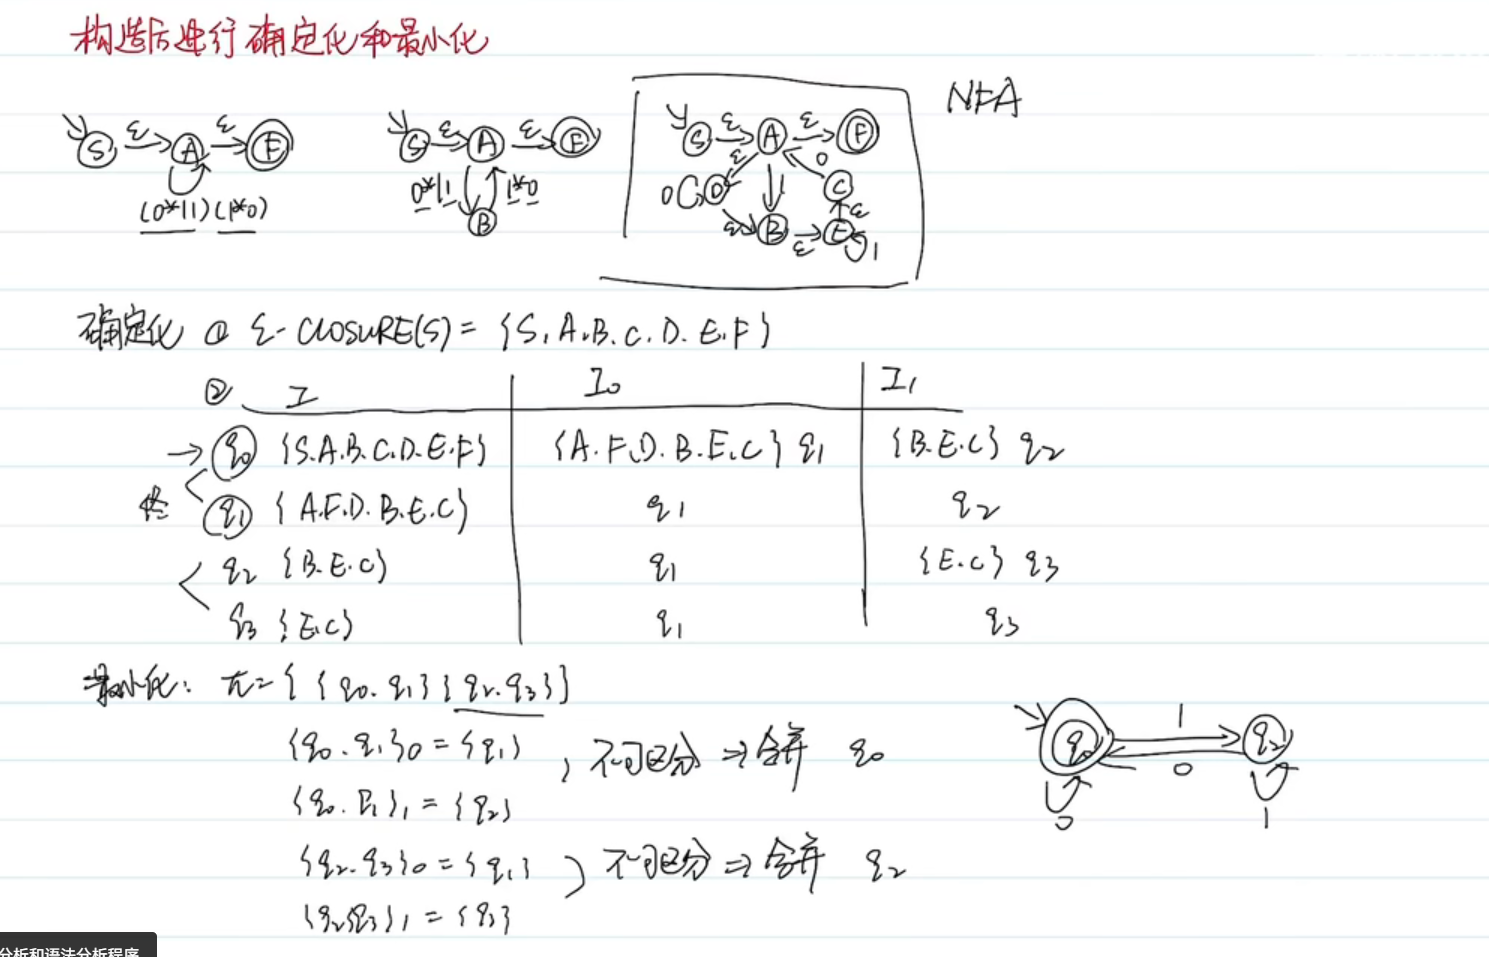 构造后进行确定化和最小化
S ε A ε F
(0*|1)(1*0)
S ε A ε F
0*|1 1*0
B
NFA
S ε A ε F
ε 0
0 D 1 C
ε B ε E ε 1
确定化 ① ε-CLOSURE(S) = {S.A.B.C.D.E.F}
② I I₀ I₁
→ q0 {S.A.B.C.D.E.F} {A.F.D.B.E.C} q1 {B.E.C} q2
终 q1 {A.F.D.B.E.C} q1 q2
q2 {B.E.C} q1 {E.C} q3
q3 {E.C} q1 q3
最小化: π={{q0.q1}{q2.q3}}
{q0.q1}0 = {q1} , 不可区分 ⇒ 合并 q0
{q0.q1}1 = {q2}
{q2.q3}0 = {q1} 不可区分 ⇒ 合并 q2
{q2q3}1 = {q3}
q0 1 q2
0
0 1
分析和语法分析程序